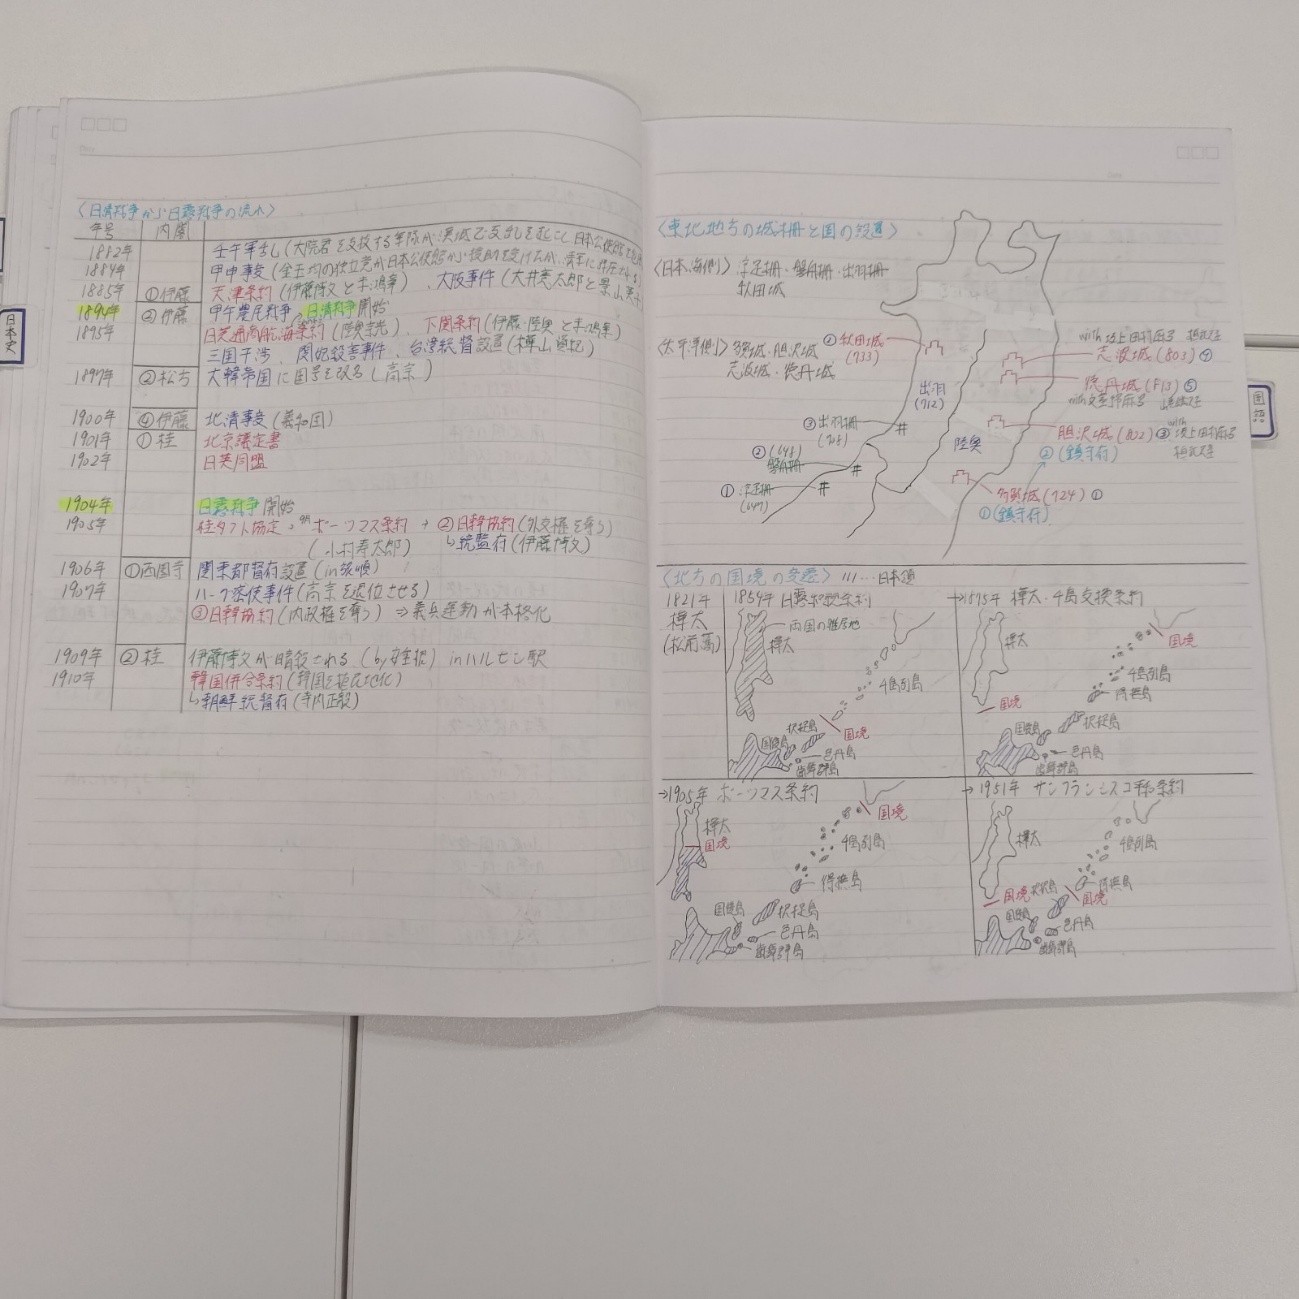 日本史
〈日清戦争から日露戦争の流れ〉
年号 内閣
1882年 壬午軍乱(大院君を支持する軍隊が漢城で反乱を起こし、日本公使館を
1884年 甲申事変(金玉均の独立党が日本公使館から援助を受けたが、清軍に
1885年 ①伊藤 天津条約(伊藤博文と李鴻章)、大阪事件(大井憲太郎と景山英子
1894年 ②伊藤 甲午農民戦争、日清戦争開始
1895年 日英通商航海条約(陸奥宗光)、下関条約(伊藤・陸奥と李鴻章)
三国干渉、閔妃殺害事件、台湾総督設置(樺山資紀)
1897年 ②松方 大韓帝国に国号を改名(高宗)
1900年 ④伊藤 北清事変(義和団)
1901年 ①桂 北京議定書
1902年 日英同盟
1904年 日露戦争開始
1905年 桂タフト協定 ポーツマス条約 → ②日韓協約(外交権を奪う)
(小村寿太郎) ↳統監府(伊藤博文)
1906年 ①西園寺 関東都督府設置(in旅順)
1907年 ハーグ密使事件(高宗を退位させる)
③日韓協約(内政権を奪う) ⇒義兵運動が本格化
1909年 ②桂 伊藤博文が暗殺される(by安重根) inハルビン駅
1910年 韓国併合条約(韓国を植民地化)
↳朝鮮総督府(寺内正毅)
〈東北地方の城柵と国の設置〉
〈日本海側〉渟足柵・磐舟柵・出羽柵
秋田城
〈太平洋側〉多賀城・胆沢城
志波城・徳丹城
④秋田城
(733)
with 坂上田村麻呂
志波城(803)④
徳丹城(813)⑤
with文室綿麻呂
出羽
(712)
③出羽柵
(708)
胆沢城(802)③
with
坂上田村麻呂
②(鎮守府)
陸奥
②(648)
磐舟柵
①渟足柵
(647)
多賀城(724)①
①(鎮守府)
〈北方の国境の変遷〉 ///…日本領
1821年
樺太
(松前藩)
1854年 日露和親条約
両国の雑居地
樺太
千島列島
国境
択捉島
国後島
色丹島
歯舞群島
→1875年 樺太・千島交換条約
樺太
国境
千島列島
得撫島
国境
択捉島
国後島
色丹島
歯舞群島
→1905年 ポーツマス条約
樺太
国境
国境
千島列島
得撫島
択捉島
国後島
色丹島
歯舞群島
→1951年 サンフランシスコ平和条約
樺太
千島列島
国境
択捉島
得撫島
国境
国後島
色丹島
歯舞群島